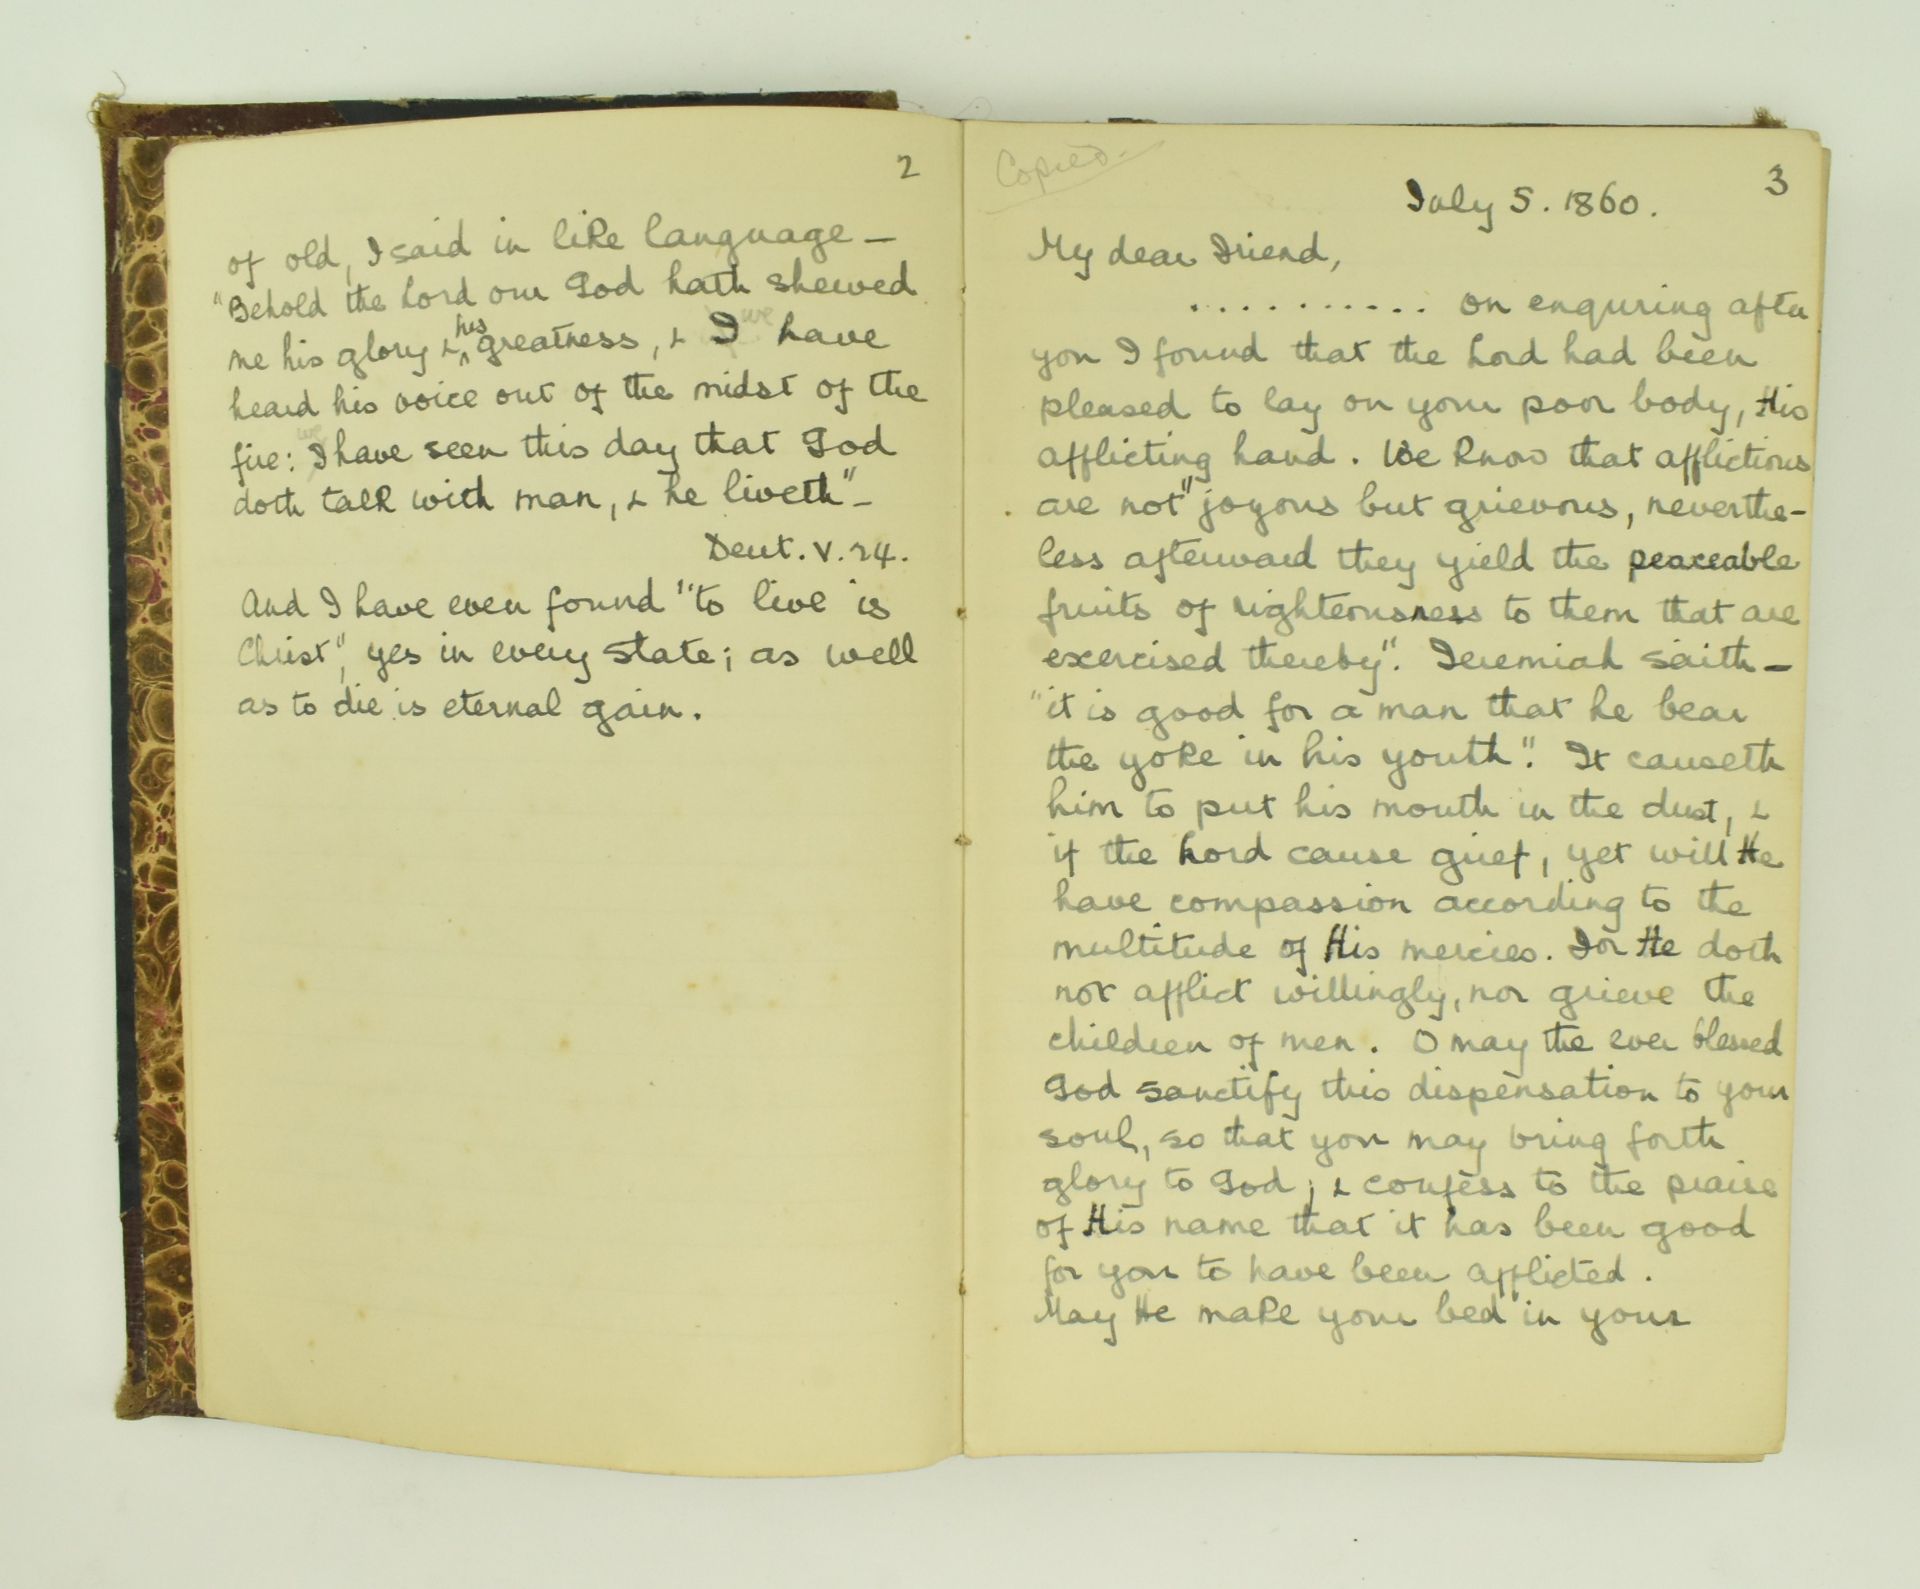 2
of old, I said in like language —
"Behold the Lord our God hath shewed
me his glory & his greatness, & I we have
heard his voice out of the midst of the
fire: we I have seen this day that God
doth talk with man, & he liveth" —
Deut. V. 24.
And I have even found "to live is
Christ", yes in every state; as well
as to die is eternal gain.
Copied.
3
July 5. 1860.
My dear Friend,
........... on enquring after
you I found that the Lord had been
pleased to lay on your poor body, His
afflicting hand. We know that afflictions
are not "joyous but grievous, neverthe-
less afterward they yield the peaceable
fruits of righteousness to them that are
exercised thereby". Jeremiah saith —
"it is good for a man that he bear
the yoke in his youth". It causeth
him to put his mouth in the dust, &
if the Lord cause grief, yet will He
have compassion according to the
multitude of His mercies. For He doth
not afflict willingly, nor grieve the
children of men. O may the ever blessed
God sanctify this dispensation to your
soul, so that you may bring forth
glory to God; & confess to the praise
of His name that it has been good
for you to have been afflicted.
May He make your bed in your